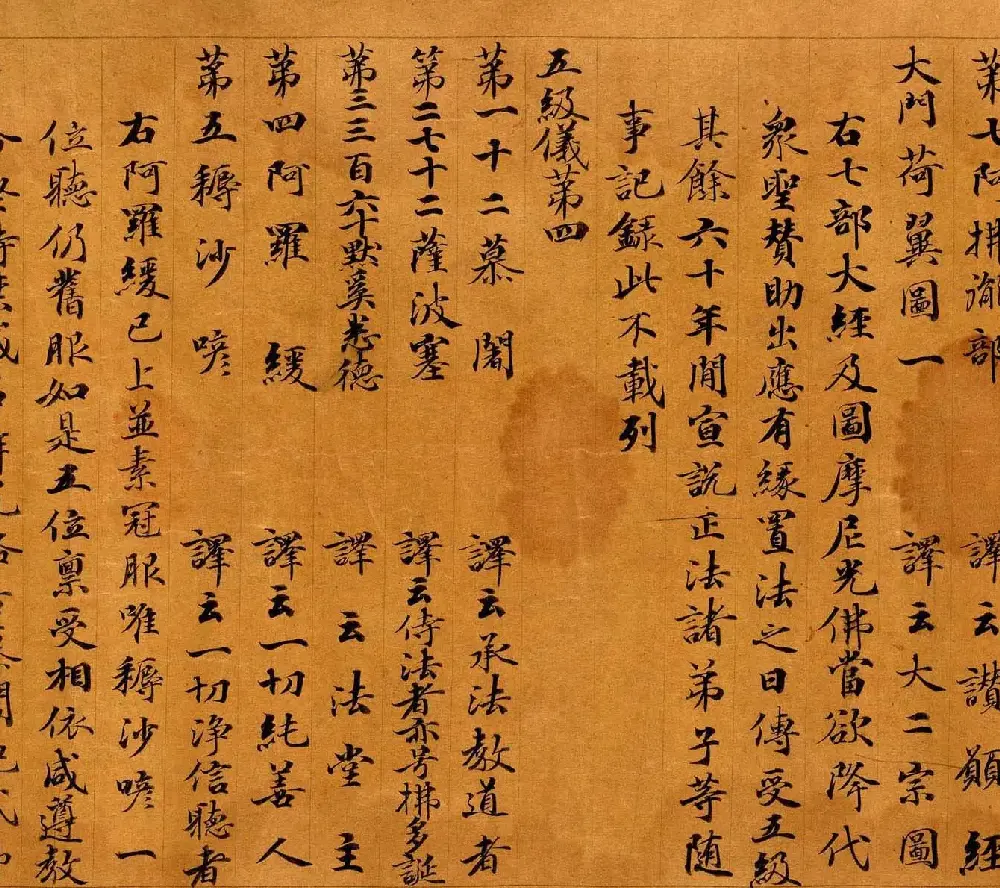 第七阿拂胤部 譯云讃願經
大門荷翼圖一 譯云大二宗圖
右七部大經及圖摩尼光佛當欲降代
衆聖賛助出應有緣置法之日傳受五級
其餘六十年間宣説正法諸弟子等随
事記録此不載列
五級儀第四
第一十二慕闍 譯云承法教道者
第二七十二薩波塞 譯云侍法者亦号拂多誕
第三三百六十默奚悉德 譯云法堂主
第四阿羅緩 譯云一切純善人
第五耨沙喭 譯云一切淨信聽者
右阿羅緩已上並素冠服唯耨沙喭一
位聽仍舊服如是五位禀受相依咸遵教